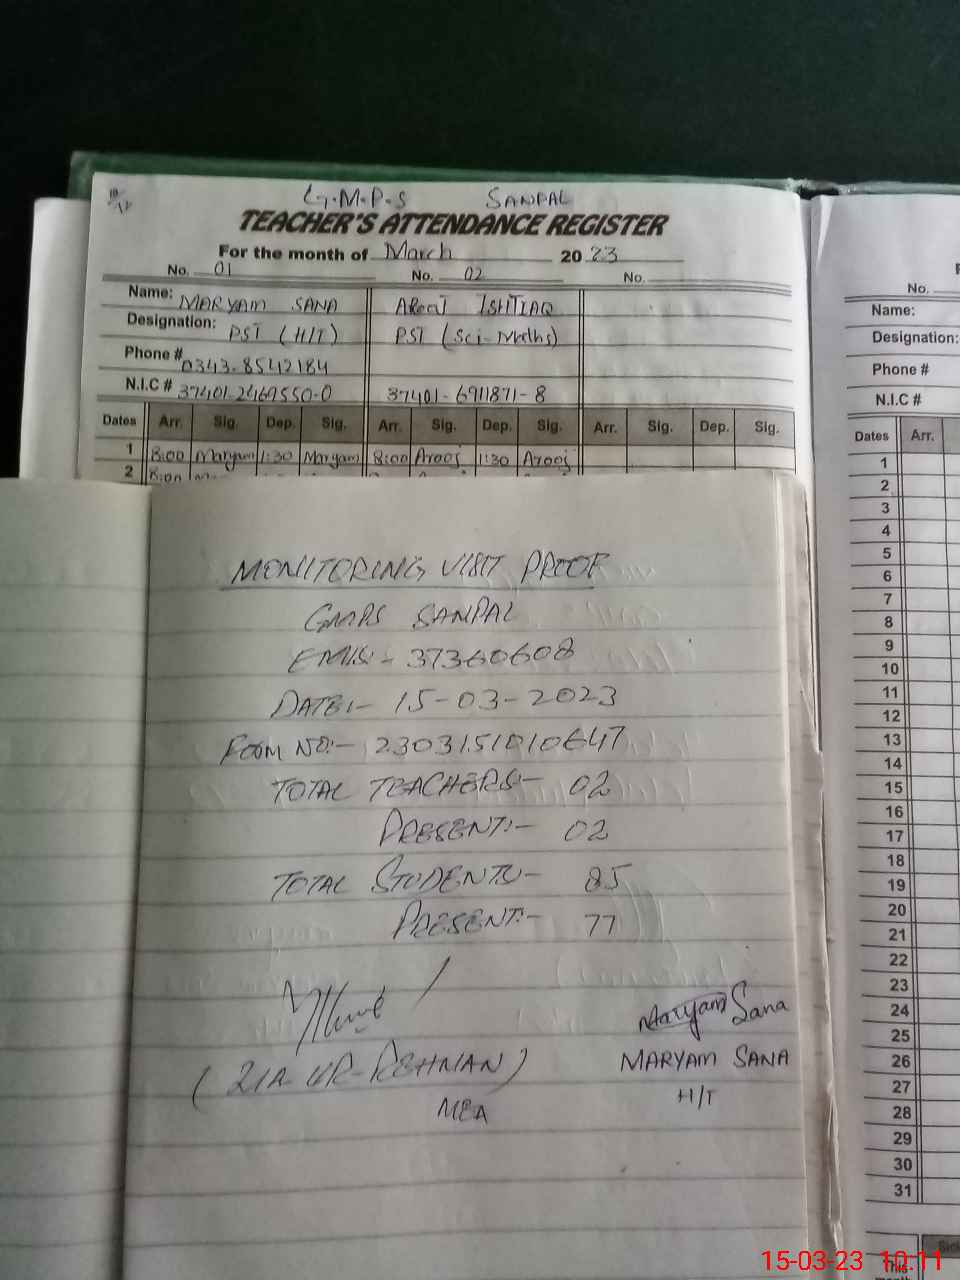 G.M.P.S SANPAL
TEACHER'S ATTENDANCE REGISTER
For the month of March 20 23
No. 01 No. 02 No.
Name: MARYAM SANA AROOJ ISHTIAQ
Designation: PST (H/T) PST (Sci-Maths)
Phone # 0343-8542184
N.I.C # 37401-2469550-0 37401-6911871-8
Dates Arr. Sig. Dep. Sig. Arr. Sig. Dep. Sig. Arr. Sig. Dep. Sig.
1 8:00 Maryam 1:30 Maryam 8:00 Arooj 1:30 Arooj
2 8:00
MONITORING VISIT PROOF
GMPS SANPAL
EMIS:- 37360608
DATE:- 15-03-2023
ROOM NO:- 2303151010647
TOTAL TEACHERS:- 02
PRESENT:- 02
TOTAL STUDENTS:- 85
PRESENT:- 77
Maryam Sana
(ZIA-UR-REHMAN)
MEA
MARYAM SANA
H/T
No.
Name:
Designation:
Phone #
N.I.C #
Dates Arr.
1
2
3
4
5
6
7
8
9
10
11
12
13
14
15
16
17
18
19
20
21
22
23
24
25
26
27
28
29
30
31
This
15-03-23 10:11